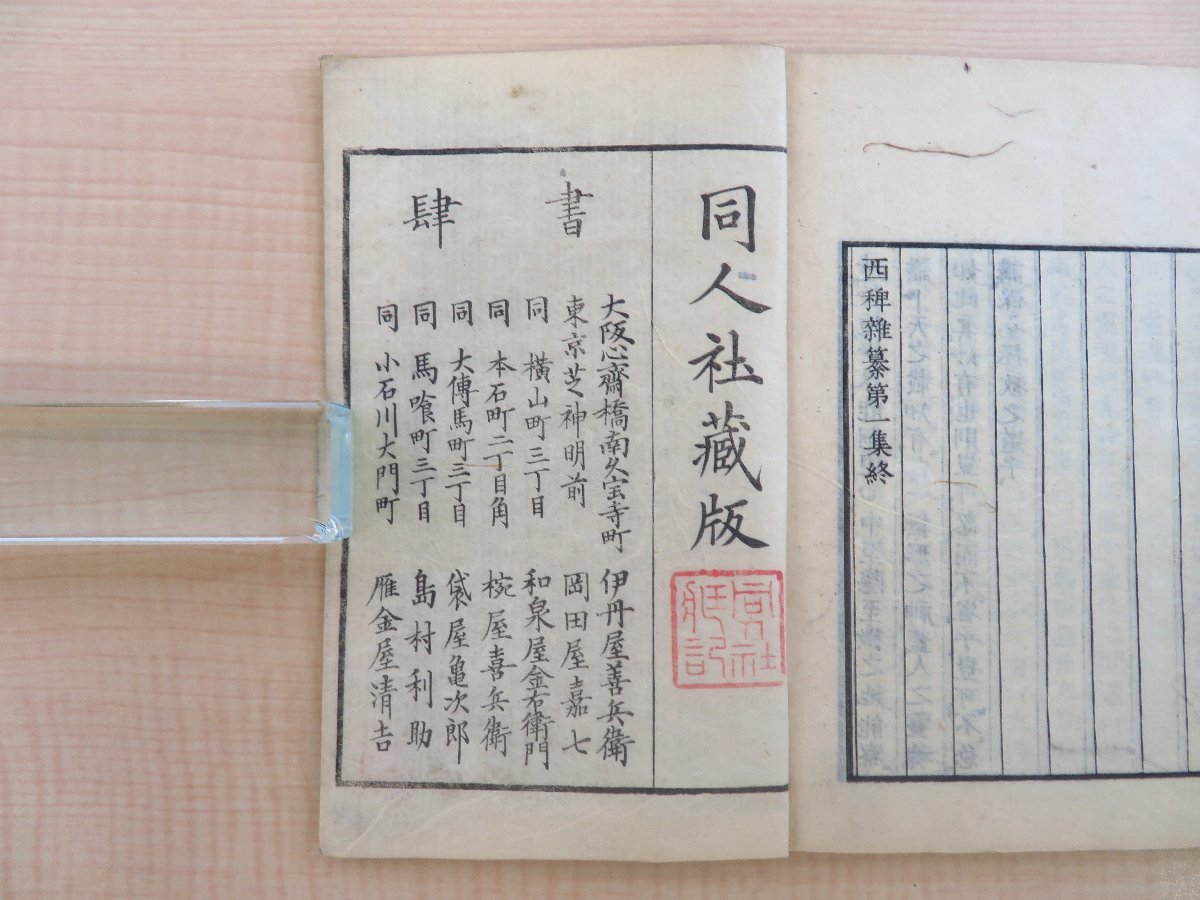 西稗雜纂第一集終
同人社藏版
同人社
書肆
大阪心齋橋南久宝寺町 伊丹屋善兵衛
東京芝神明前 岡田屋嘉七
同 横山町三丁目 和泉屋金右衛門
同 本石町二丁目角 椀屋喜兵衛
同 大傳馬町三丁目 袋屋亀次郎
同 馬喰町三丁目 島村利助
同 小石川大門町 雁金屋清吉